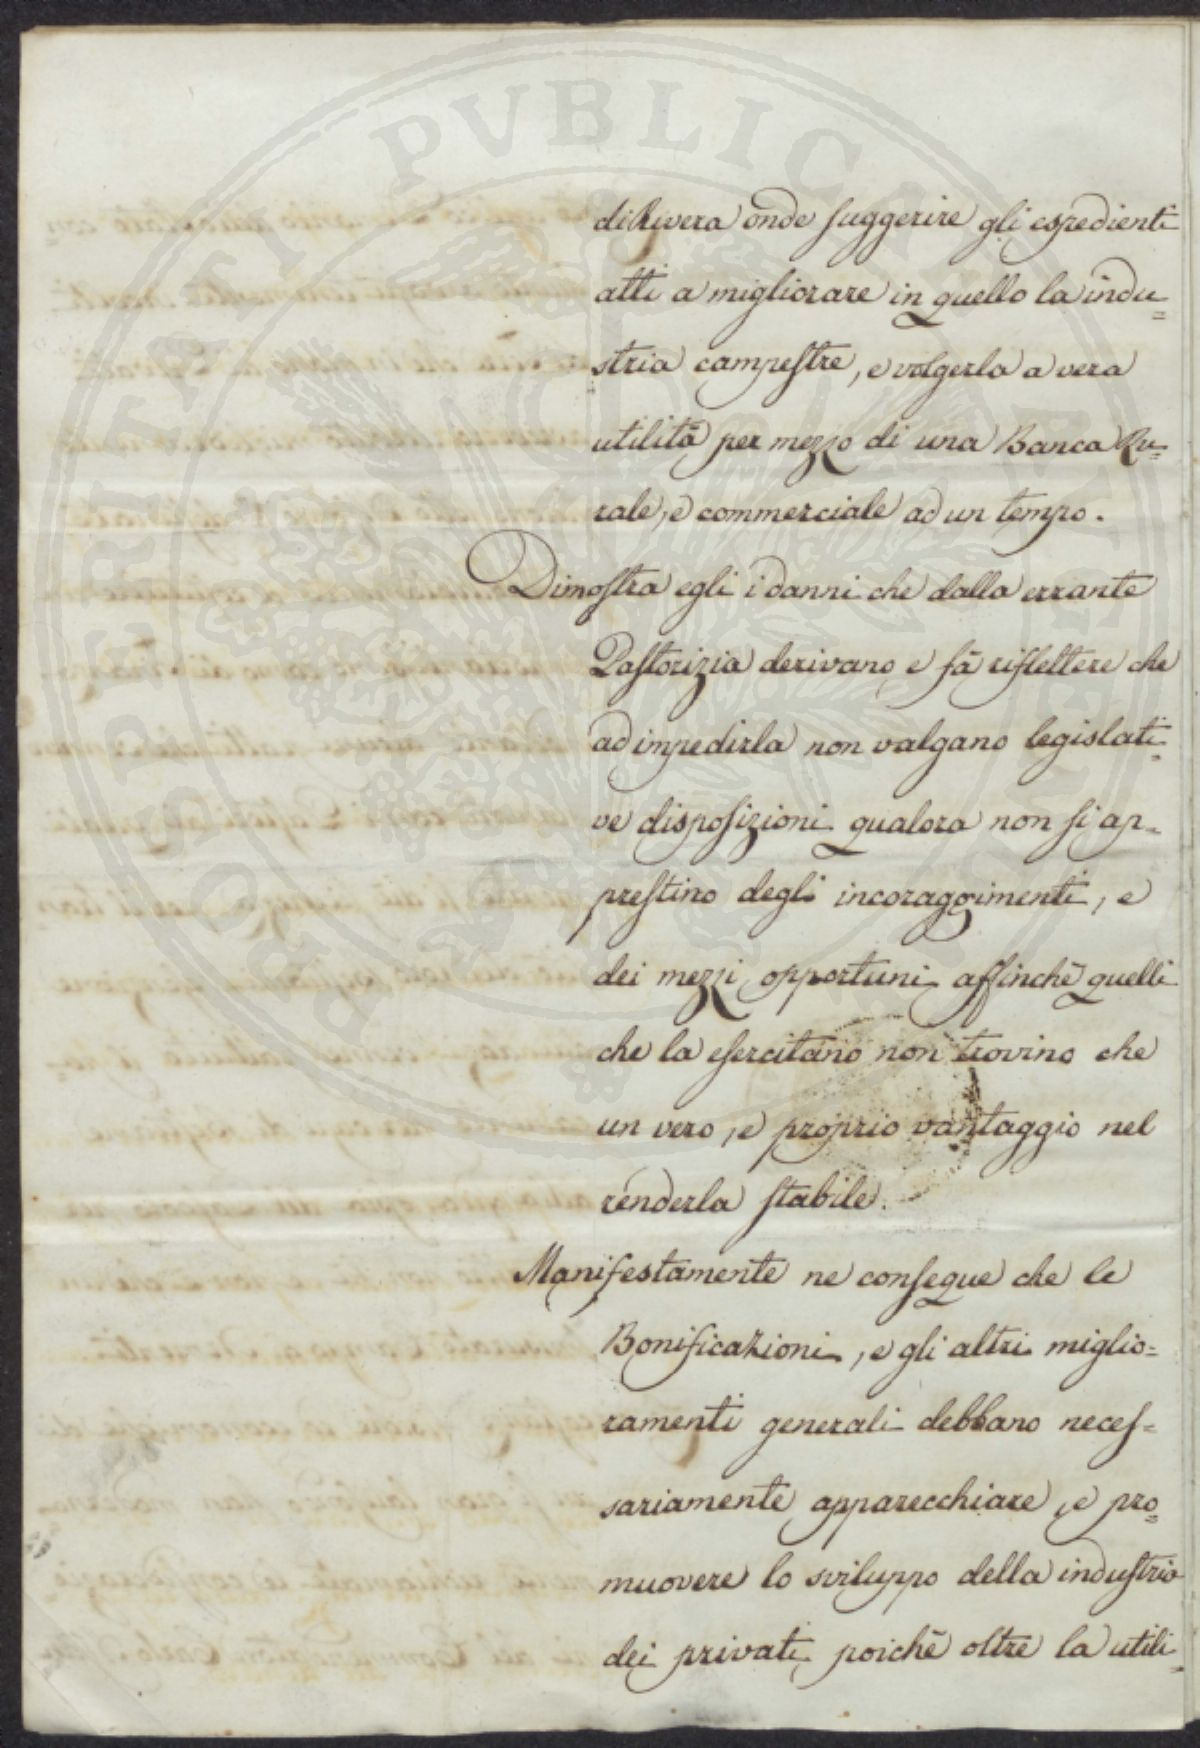 PROSPERITATI PUBLICAE
di Rivera onde suggerire gli espedienti
atti a migliorare in quello la indu=
stria campestre, e volgerla a vera
utilità per mezzo di una Banca Ru=
rale, e commerciale ad un tempo.
Dimostra egli i danni che dalla errante
Pastorizia derivano, e fà riflettere che
ad impedirla non valgano legislati=
ve disposizioni qualora non si ap=
prestino degli incoraggimenti, e
dei mezzi opportuni affinchè quelli
che la esercitano non trovino che
un vero, e proprio vantaggio nel
renderla stabile.
Manifestamente ne consegue che le
Bonificazioni, e gli altri miglio=
ramenti generali debbano neces=
sariamente apparecchiare, e pro=
muovere lo sviluppo della industria
dei privati, poichè oltre la utili=